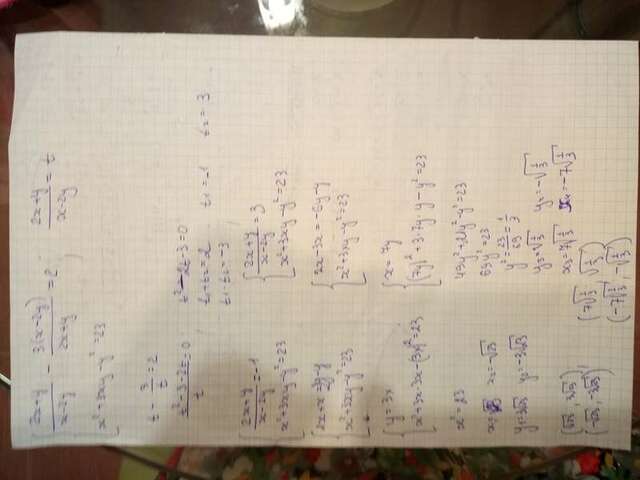 { (2x+y)/(x-2y) - 3(x-2y)/(2x+y) = 2
x²+3xy-y²=23
(2x+y)/(x-2y) = t
t - 3/t = 2
(t²-3-2t)/t = 0
t²-2t-3=0
t₁+t₂=2
t₁·t₂=-3
t₁=-1 t₂=3
{ (2x+y)/(x-2y) = -1
x²+3xy-y²=23
{ (2x+y)/(x-2y) = 3
x²+3xy-y²=23
x²+3xy-y²=23
{ 2x-3x=-6y-y
x²+3xy-y²=23
{ y=3x
x²+3x·3x-(3x)²=23
x²=23
x₂=-√23
y₁=3√23 y₂=-3√23
(√23, 3√23)
(-√23, -3√23)
{ x=7y
(7y)²+3·7y·y-y²=23
49y²+21y²-y²=23
69y²=23
y²=23/69=1/3
y₃=√(1/3) y₄=-√(1/3)
x₃=7√(1/3) x₄=-7√(1/3)
(7√(1/3), √(1/3))
(-7√(1/3), -√(1/3))